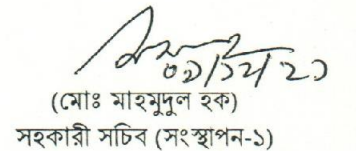 ০১/১২/২১
(মোঃ মাহমুদুল হক)
সহকারী সচিব (সংস্থাপন-১)